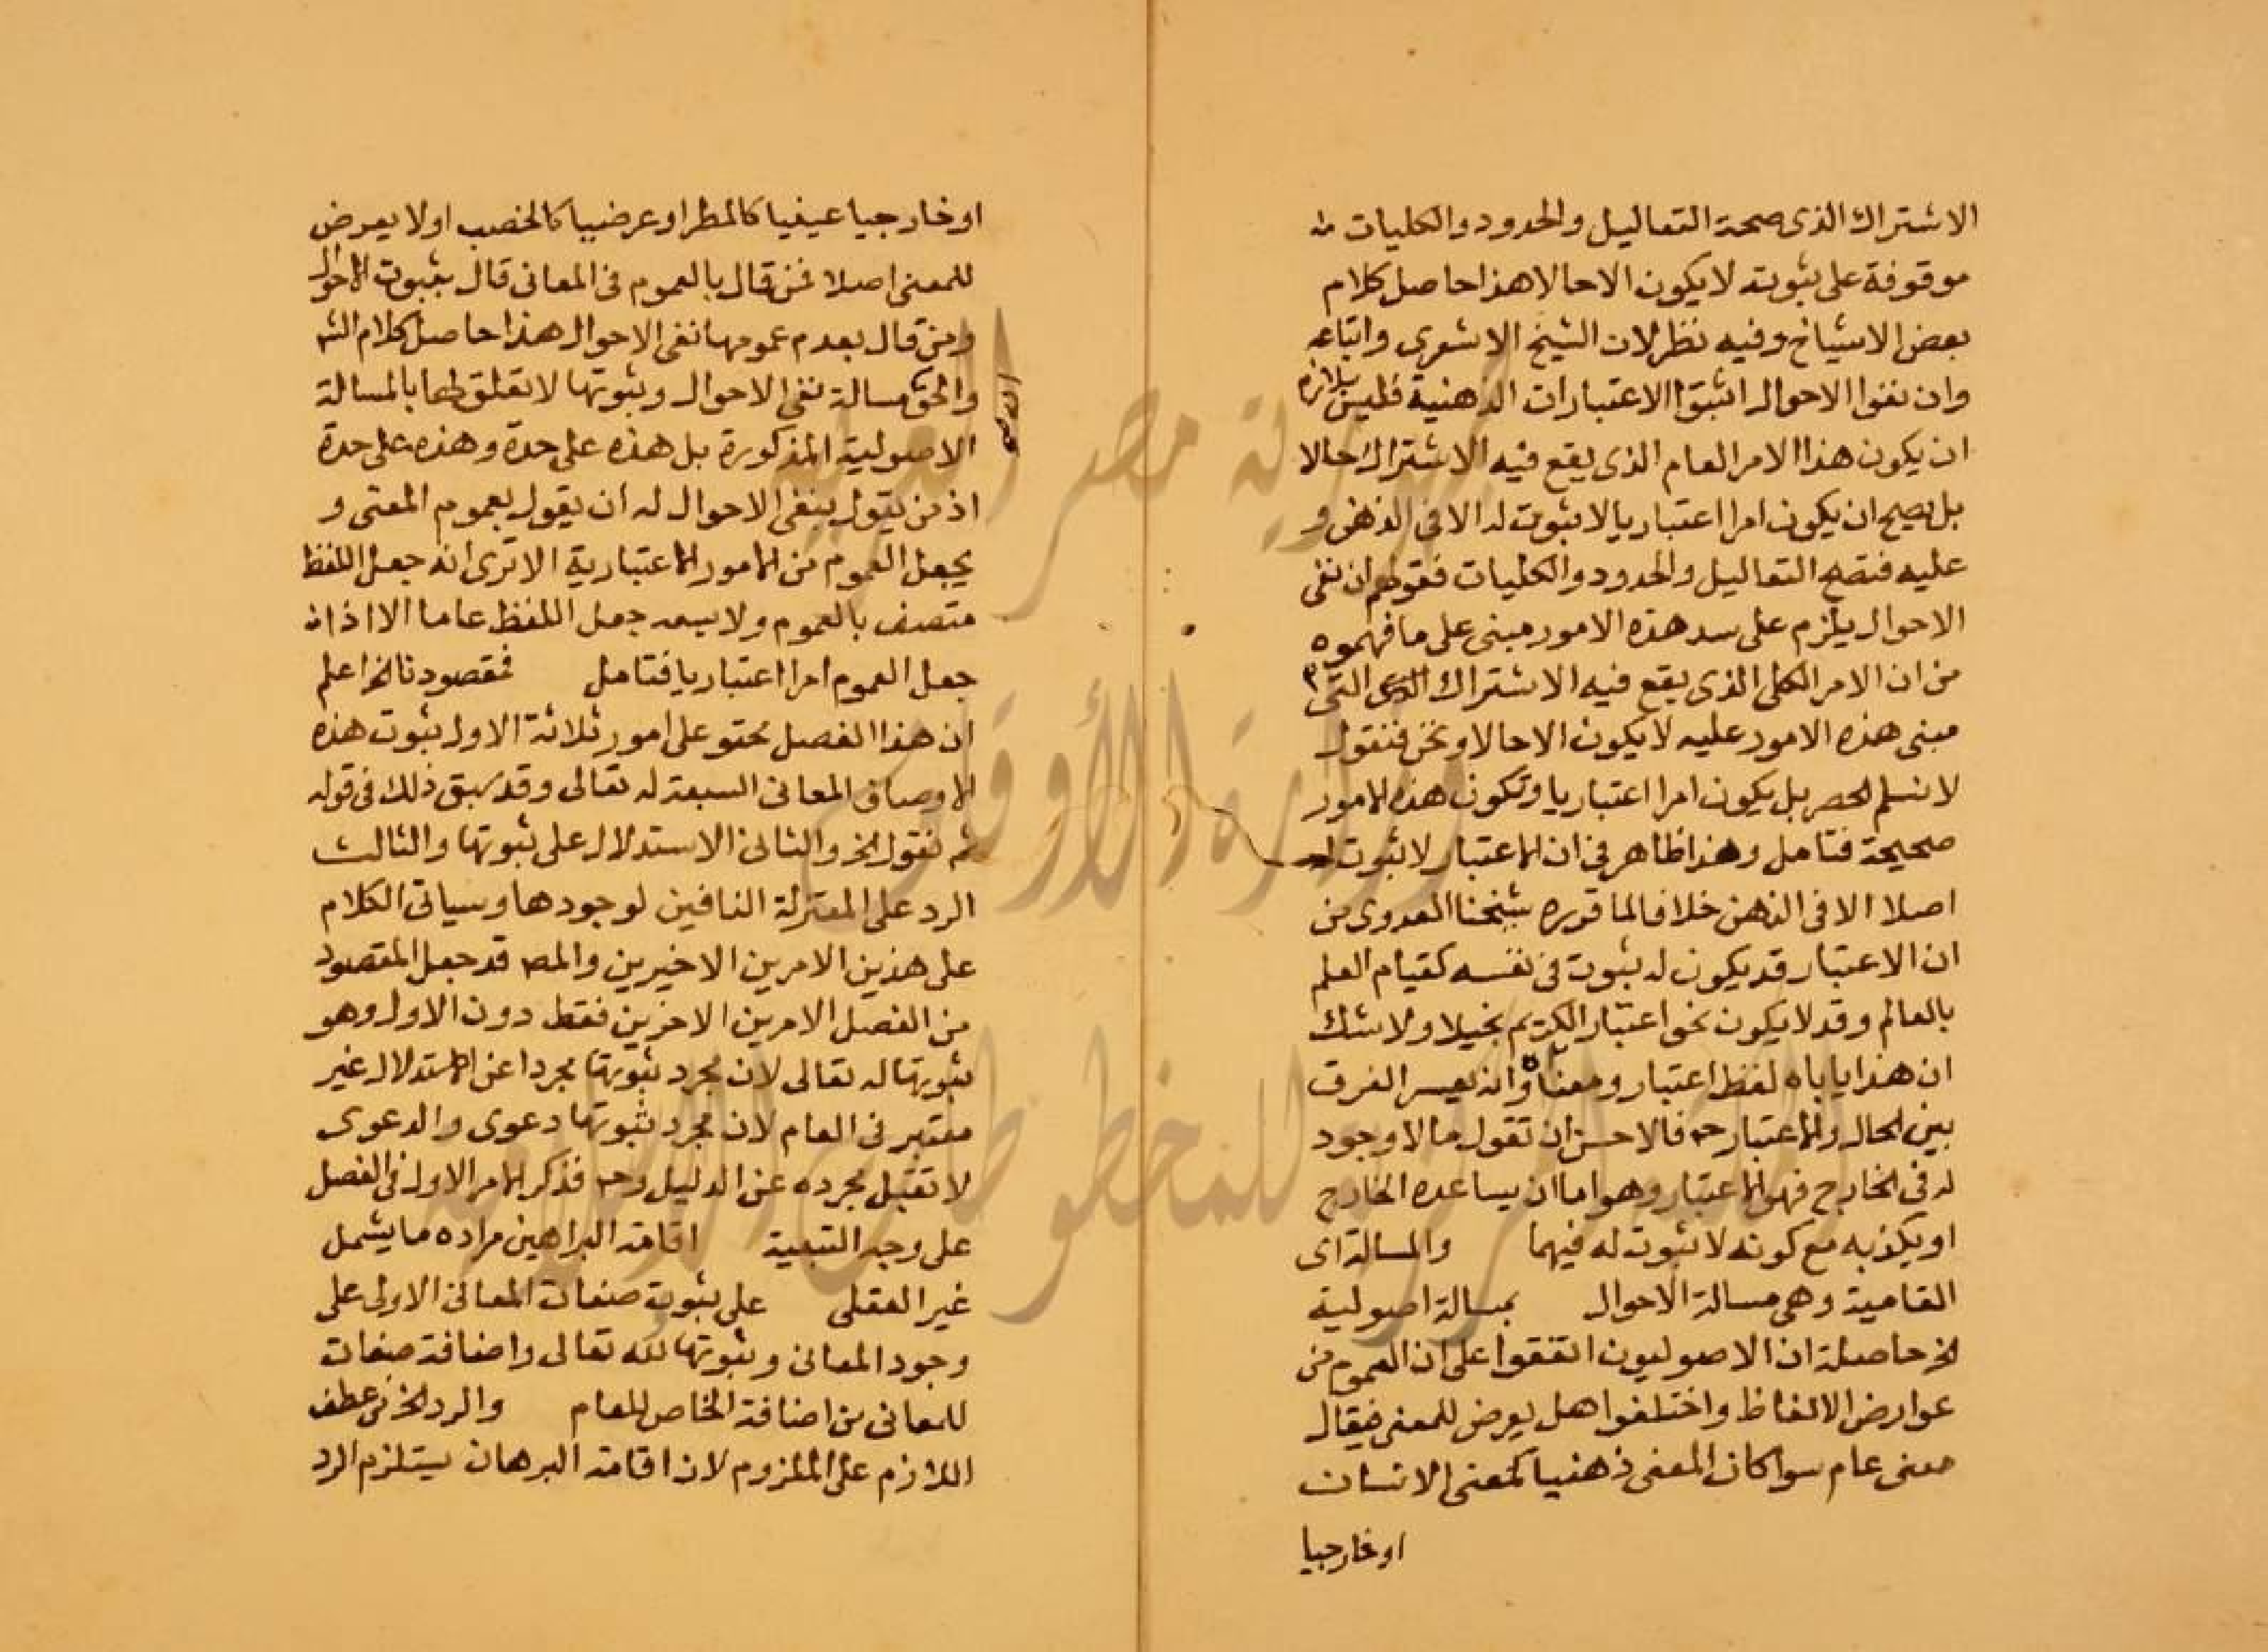 الاشتراك الذى صحة التعاليل والحدود والكليات
موقوفة على ثبوته لا يكون الا حالا هذا حاصل كلام
بعض الاشياخ وفيه نظر لان الشيخ الاشعرى واتباعه
وان نفوا الاحوال اثبتوا الاعتبارات الذهنية فليس بلازم
ان يكون هذا الامر العام الذى يقع فيه الاشتراك حالا
بل يصح ان يكون امرا اعتباريا لا ثبوت له الا فى الذهن و
عليه فتصح التعاليل والحدود والكليات فقولهم ان نفى
الاحوال يلزم على سد هذه الامور مبنى على ما فهموه
من ان الامر الكلى الذى يقع فيه الاشتراك التى
مبنى هذه الامور عليه لا يكون الا حالا ونحن فنقول
لا نسلم الحصر بل يكون امرا اعتباريا وتكون هذه الامور
صحيحة فتامل وهذا ظاهر فى ان الاعتبار لا ثبوت له
اصلا الا فى الذهن خلافا لما قرره شيخنا العدوى من
ان الاعتبار قد يكون له ثبوت فى نفسه كقيام العلم
بالعالم وقد لا يكون نحو اعتبار الكريم بخيلا ولا شك
ان هذا ياباه لفظ اعتبار ومعناه وانه يعسر الفرق
بين الحال والاعتبار حـ فالاحسن ان تقول ما لا وجود
له فى الخارج فهو الاعتبار وهو اما ان يساعده الخارج
او يكذبه مع كونه لا ثبوت له فيهما والمسالة اى
القامية وهى مسالة الاحوال بمسالة اصولية
الخ حاصله ان الاصوليون اتفقوا على ان العموم من
عوارض الالفاظ واختلفوا هل يعرض للمعنى فيقال
معنى عام سوا كان المعنى ذهنيا كمعنى الانسان
او خارجيا
او خارجيا عينيا كالمطر او عرضيا كالخصب او لا يعرض
للمعنى اصلا فمن قال بالعموم فى المعانى قال بثبوت الاحوال
ومن قال بعدم عمومها نفى الاحوال هذا حاصل كلام الشـ
والحق مسالة نفى الاحوال وثبوتها لا تعلق لها بالمسالة
الاصولية المذكورة بل هذه على حدة وهذه على حدة
اذ من يقول بنفى الاحوال له ان يقول بعموم المعنى و
يجعل العموم من الامور الاعتبارية الا ترى انه جعل اللفظ
متصف بالعموم ولا يسعه جعل اللفظ عاما الا اذا
جعل العموم امرا اعتباريا فتامل فمقصودنا الخ اعلم
ان هذا الفصل محتو على امور ثلاثة الاول ثبوت هذه
الاوصاف المعانى السبعة له تعالى وقد سبق ذلك فى قوله
ثم نقول الخ والثانى الاستدلال على ثبوتها والثالث
الرد على المعتزلة النافين لوجودها وسياتى الكلام
على هذين الامرين الاخيرين والمصـ قد جعل المقصود
من الفصل الامرين الاخرين فقط دون الاول وهو
ثبوتها له تعالى لان مجرد ثبوتها مجردا عن الاستدلال غير
معتبر فى العام لان مجرد ثبوتها دعوى والدعوى
لا تقبل مجرده عن الدليل وحـ فذكر الامر الاول فى الفصل
على وجه التبعية اقامة البراهين مراده ما يشمل
غير العقلى على ثبوت صفات المعانى الاولى على
وجود المعانى وثبوتها لله تعالى واضافة صفات
للمعانى من اضافة الخاص للعام والرد الخ من عطف
اللازم على الملزوم لان اقامة البرهان يستلزم الرد